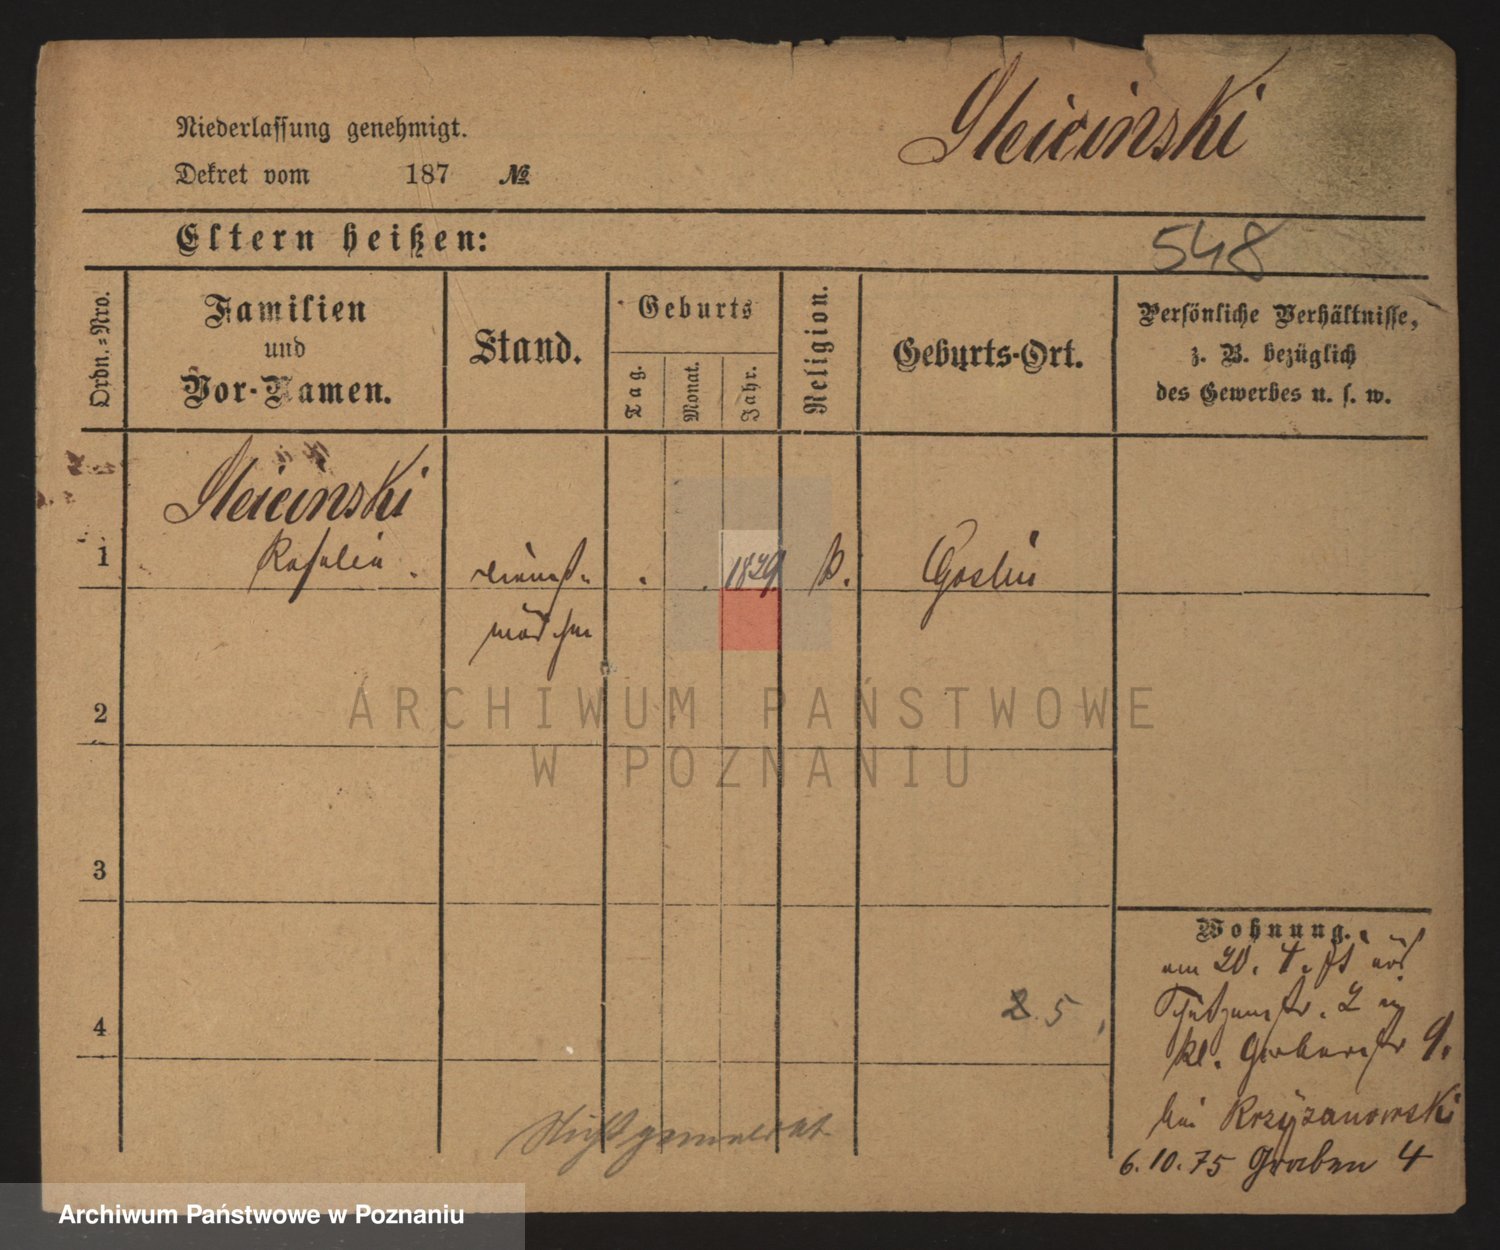 Niederlassung genehmigt.
Dekret vom 187 №
Sleicinski
Eltern heißen:
548
Ordn.-Nro.
Familien
und
Vor-Namen.
Stand.
Geburts
Tag.
Monat.
Jahr.
Religion.
Geburts-Ort.
Persönliche Verhältnisse,
z. B. bezüglich
des Gewerbes u. s. w.
Sleicinski
1 Rosalia . dienst- . . 1829. k. Goslin
mädchen
ARCHIWUM PAŃSTWOWE
W POZNANIU
2
3
4
Wohnung.
am 20. 4. 75 aus
Schützenstr. 2 in
kl. Gerberstr 9.
bei Krzyzanowski
6.10.75 Graben 4
25
Nicht gemeldet
Archiwum Państwowe w Poznaniu